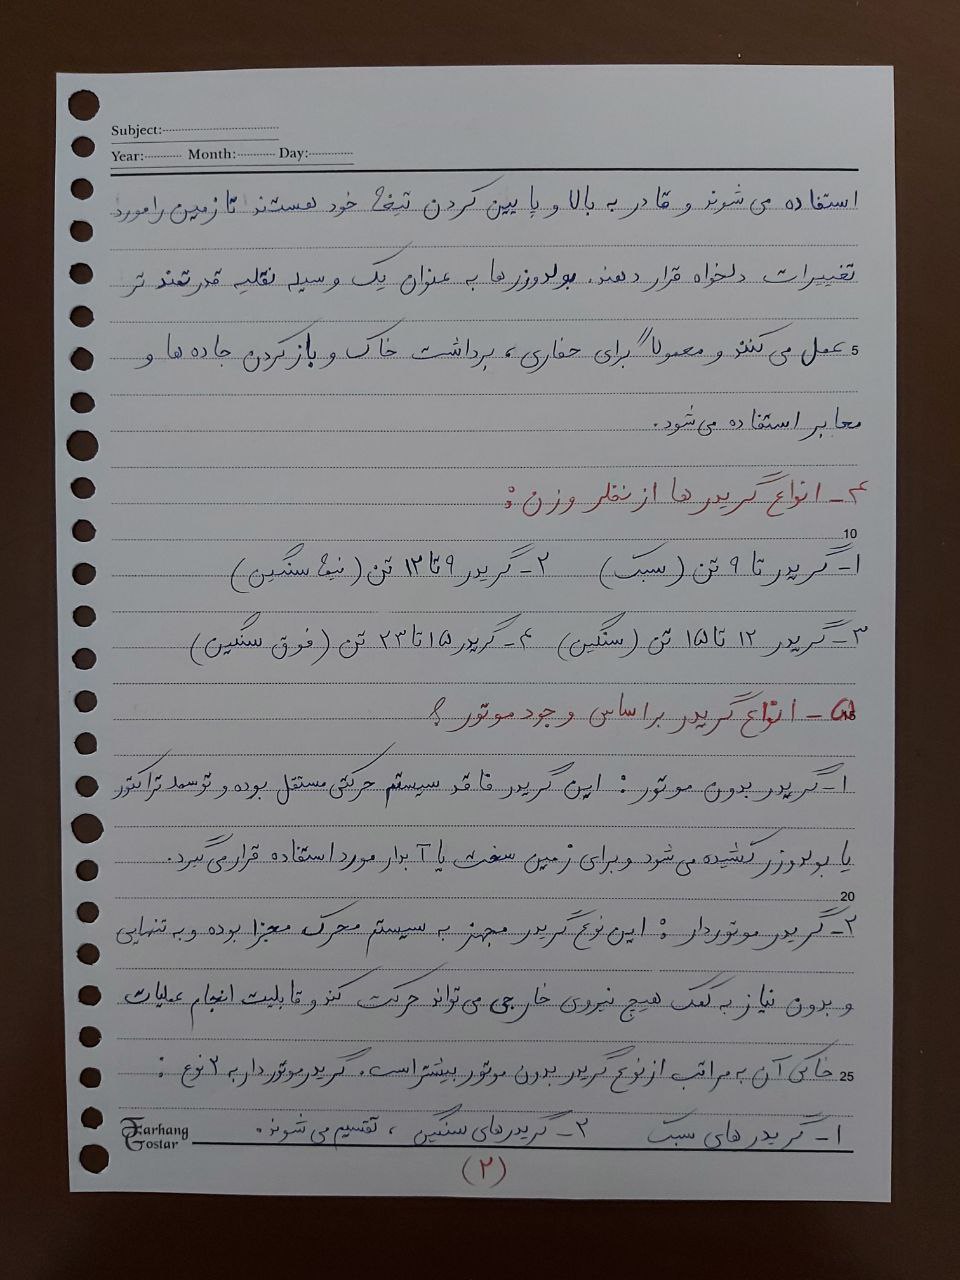 Subject:
Year: Month: Day:
استفاده می شوند و قادر به بالا و پایین کردن تیغهٔ خود هستند تا زمین را مورد
تغییرات دلخواه قرار دهند. بولدوزرها به عنوان یک وسیله نقلیه قدرتمند تر
5 عمل می کنند و معمولاً برای حفاری ، برداشت خاک و باز کردن جاده ها و
معابر استفاده می شود.
۴- انواع گریدر ها از نظر وزن :
10
۱- گریدر تا ۹ تن (سبک) ۲- گریدر ۹ تا ۱۲ تن (نیمه سنگین)
۳- گریدر ۱۲ تا ۱۵ تن (سنگین) ۴- گریدر ۱۵ تا ۲۳ تن (فوق سنگین)
15
۵- انواع گریدر بر اساس وجود موتور ؟
۱- گریدر بدون موتور : این گریدر فاقد سیستم حرکتی مستقل بوده و توسط تراکتور
یا بولدوزر کشیده می شود و برای زمین سخت یا آبدار مورد استفاده قرار می گیرد.
20
۲- گریدر موتوردار : این نوع گریدر مجهز به سیستم محرک مجزا بوده و به تنهایی
و بدون نیاز به کمک هیچ نیروی خارجی می تواند حرکت کند و قابلیت انجام عملیات
25 خاکی آن به مراتب از نوع گریدر بدون موتور بیشتر است. گریدر موتور دار به ۲ نوع :
۱- گریدر های سبک ۲- گریدرهای سنگین ، تقسیم می شوند.
Farhang
Gostar
(۲)